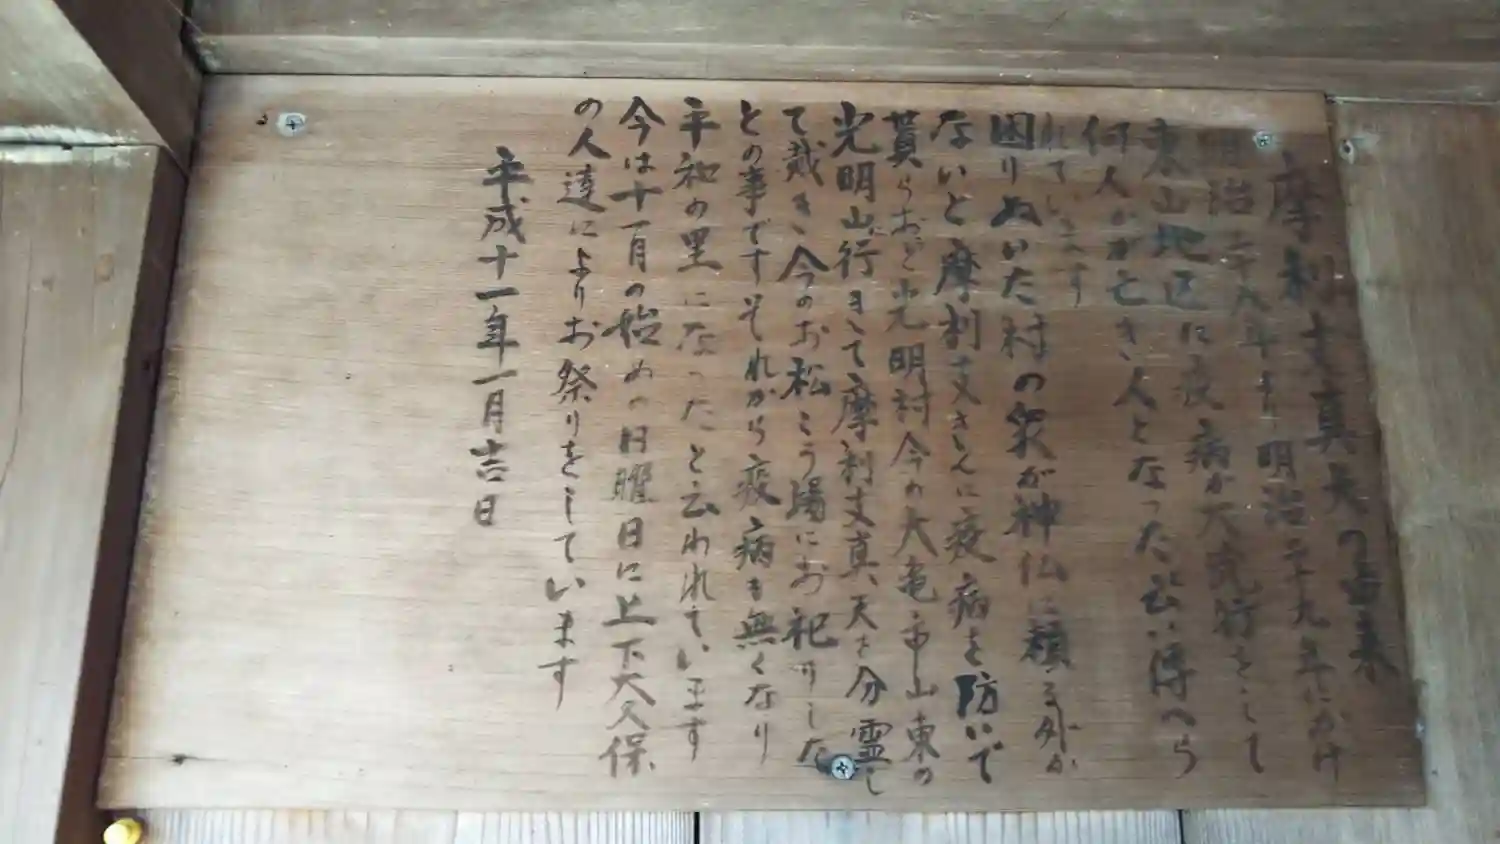 摩利支真天の由来
明治二十九年十明治三十九年にかけ
東山地区に疫病が大流行をして
何人かが亡き人となった云い傳へら
れています
困りぬいた村の衆が神仏に頼る外が
ないと摩利支さんに疫病を防いで
貰らおと光明村今の大亀市山東の
光明山行きて摩利支真天を分霊し
て戴き今のお松こう場にお祀りした
との事ですそれから疫病も無くなり
平和の里になったと云われています
今は十一月の始めの日曜日に上下大久保
の人達によりお祭りをしています
平成十一年一月吉日